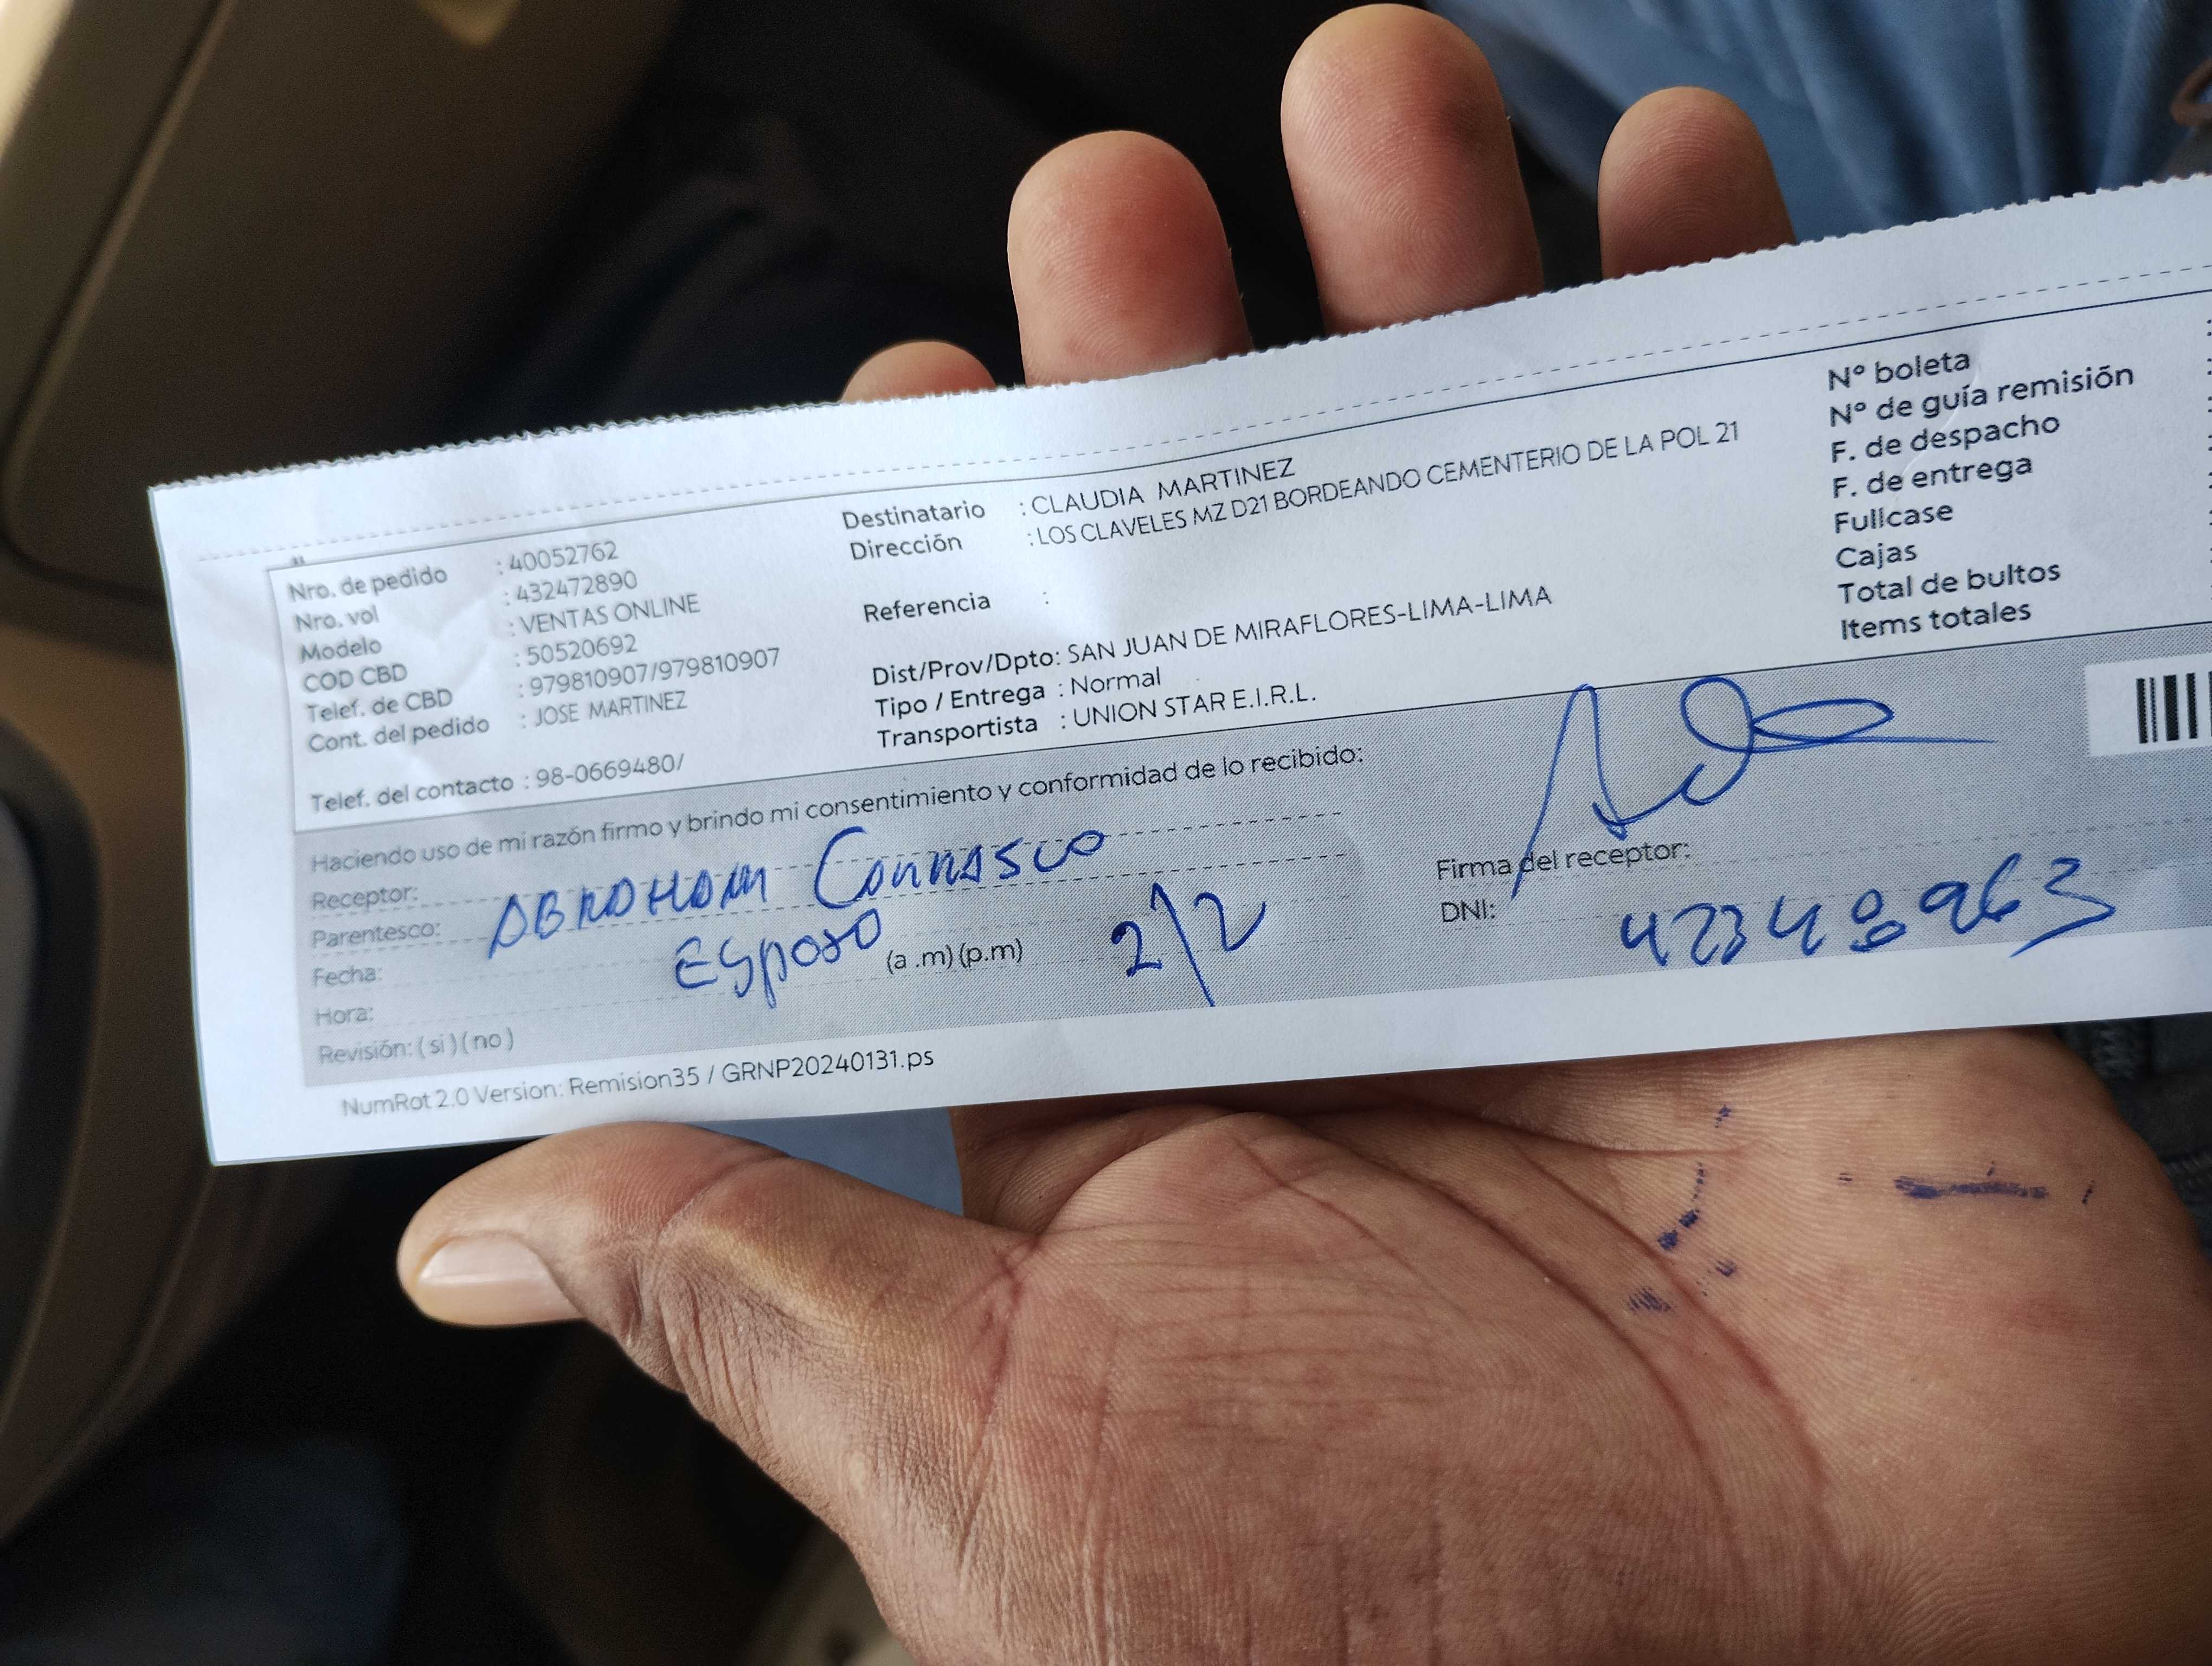 Nro. de pedido : 40052762
Nro. vol : 432472890
Modelo : VENTAS ONLINE
COD CBD : 50520692
Telef. de CBD : 979810907/979810907
Cont. del pedido : JOSE MARTINEZ
Telef. del contacto : 98-0669480/
Destinatario : CLAUDIA MARTINEZ
Dirección : LOS CLAVELES MZ D21 BORDEANDO CEMENTERIO DE LA POL 21
Referencia :
Dist/Prov/Dpto: SAN JUAN DE MIRAFLORES-LIMA-LIMA
Tipo / Entrega : Normal
Transportista : UNION STAR E.I.R.L.
N° boleta :
N° de guía remisión :
F. de despacho :
F. de entrega :
Fullcase :
Cajas :
Total de bultos :
Items totales :
Haciendo uso de mi razón firmo y brindo mi consentimiento y conformidad de lo recibido:
Receptor: ABRAHAM
Parentesco: Esposo
Fecha:
Hora: (a .m) (p.m) 2/2
Revisión: ( si ) ( no )
Firma del receptor:
DNI: 42348963
NumRot 2.0 Version: Remision35 / GRNP20240131.ps